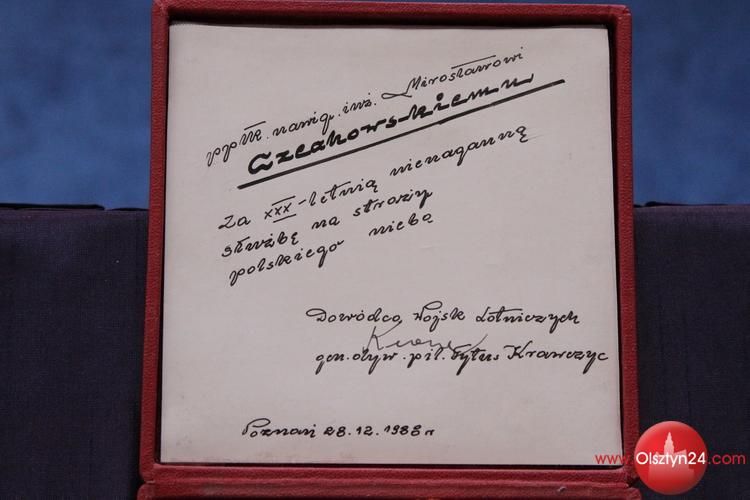 ppłk. nawig. inż. Mirosławowi
Czeakowskiemu
Za XXX-letnią nienaganną
służbę na straży
polskiego nieba
Dowódca Wojsk Lotniczych
gen. dyw. pil. Tytus Krawczyc
Poznań 28.12.1988 r
www.Olsztyn24.com